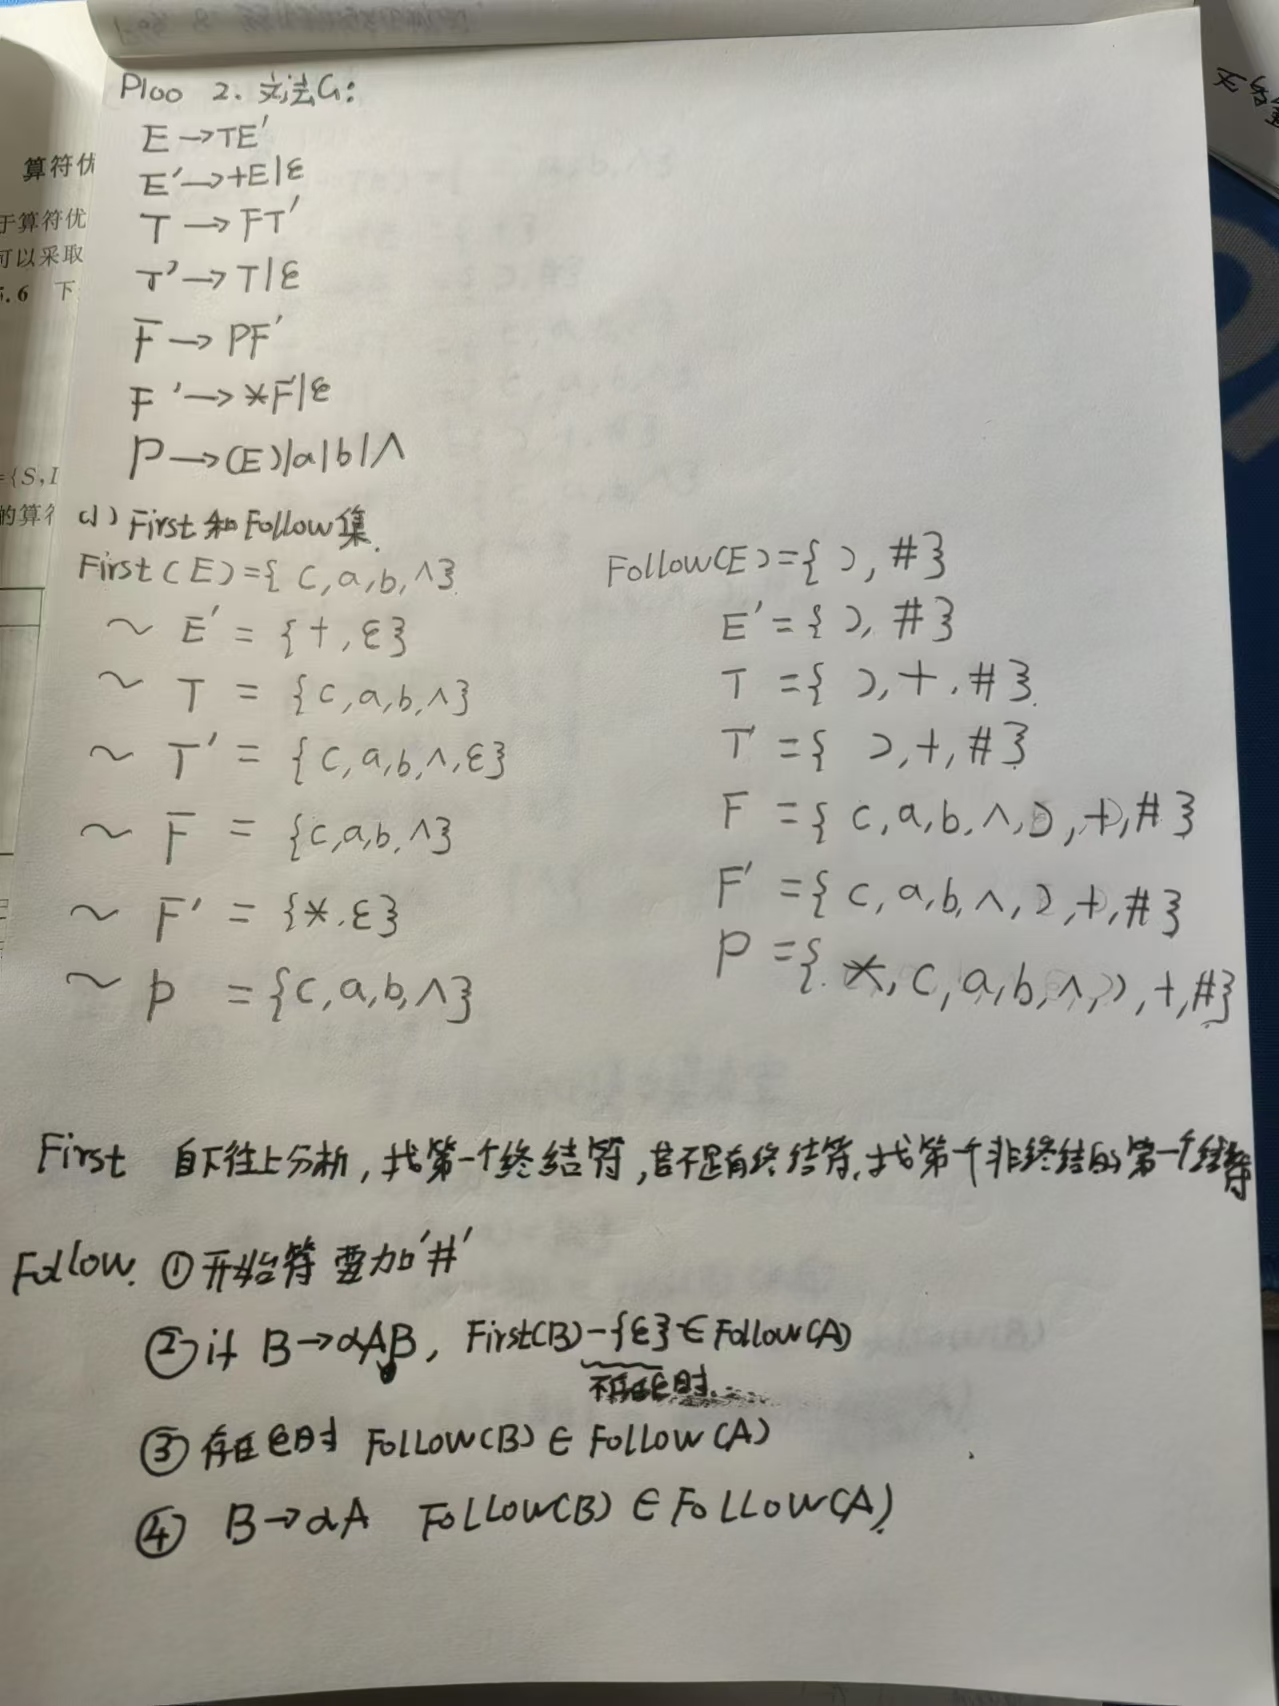 P100 2. 文法G:
E→TE′
E′→+E|ε
T→FT′
T′→T|ε
F→PF′
F′→*F′|ε
P→(E)|a|b|∧
(1) First和Follow集.
First(E)={(,a,b,∧}
~ E′={+,ε}
~ T={(,a,b,∧}
~ T′={(,a,b,∧,ε}
~ F={(,a,b,∧}
~ F′={*,ε}
~ P={(,a,b,∧}
Follow(E)={),#}
E′={),#}
T={),+,#}
T′={),+,#}
F={(,a,b,∧,),+,#}
F′={(,a,b,∧,),+,#}
P={*,(,a,b,∧,),+,#}
First 自下往上分析,找第一个终结符,若不是有终结符,找第一个非终结的第一个终结符
Follow. ①开始符要加'#'
②if B→αAβ, First(β)-{ε}∈Follow(A)
不存在ε时
③存在ε时 Follow(B)∈Follow(A)
④ B→αA Follow(B)∈Follow(A)
算符优
于算符优
可以采取
5.6 下
={S,I
的算符